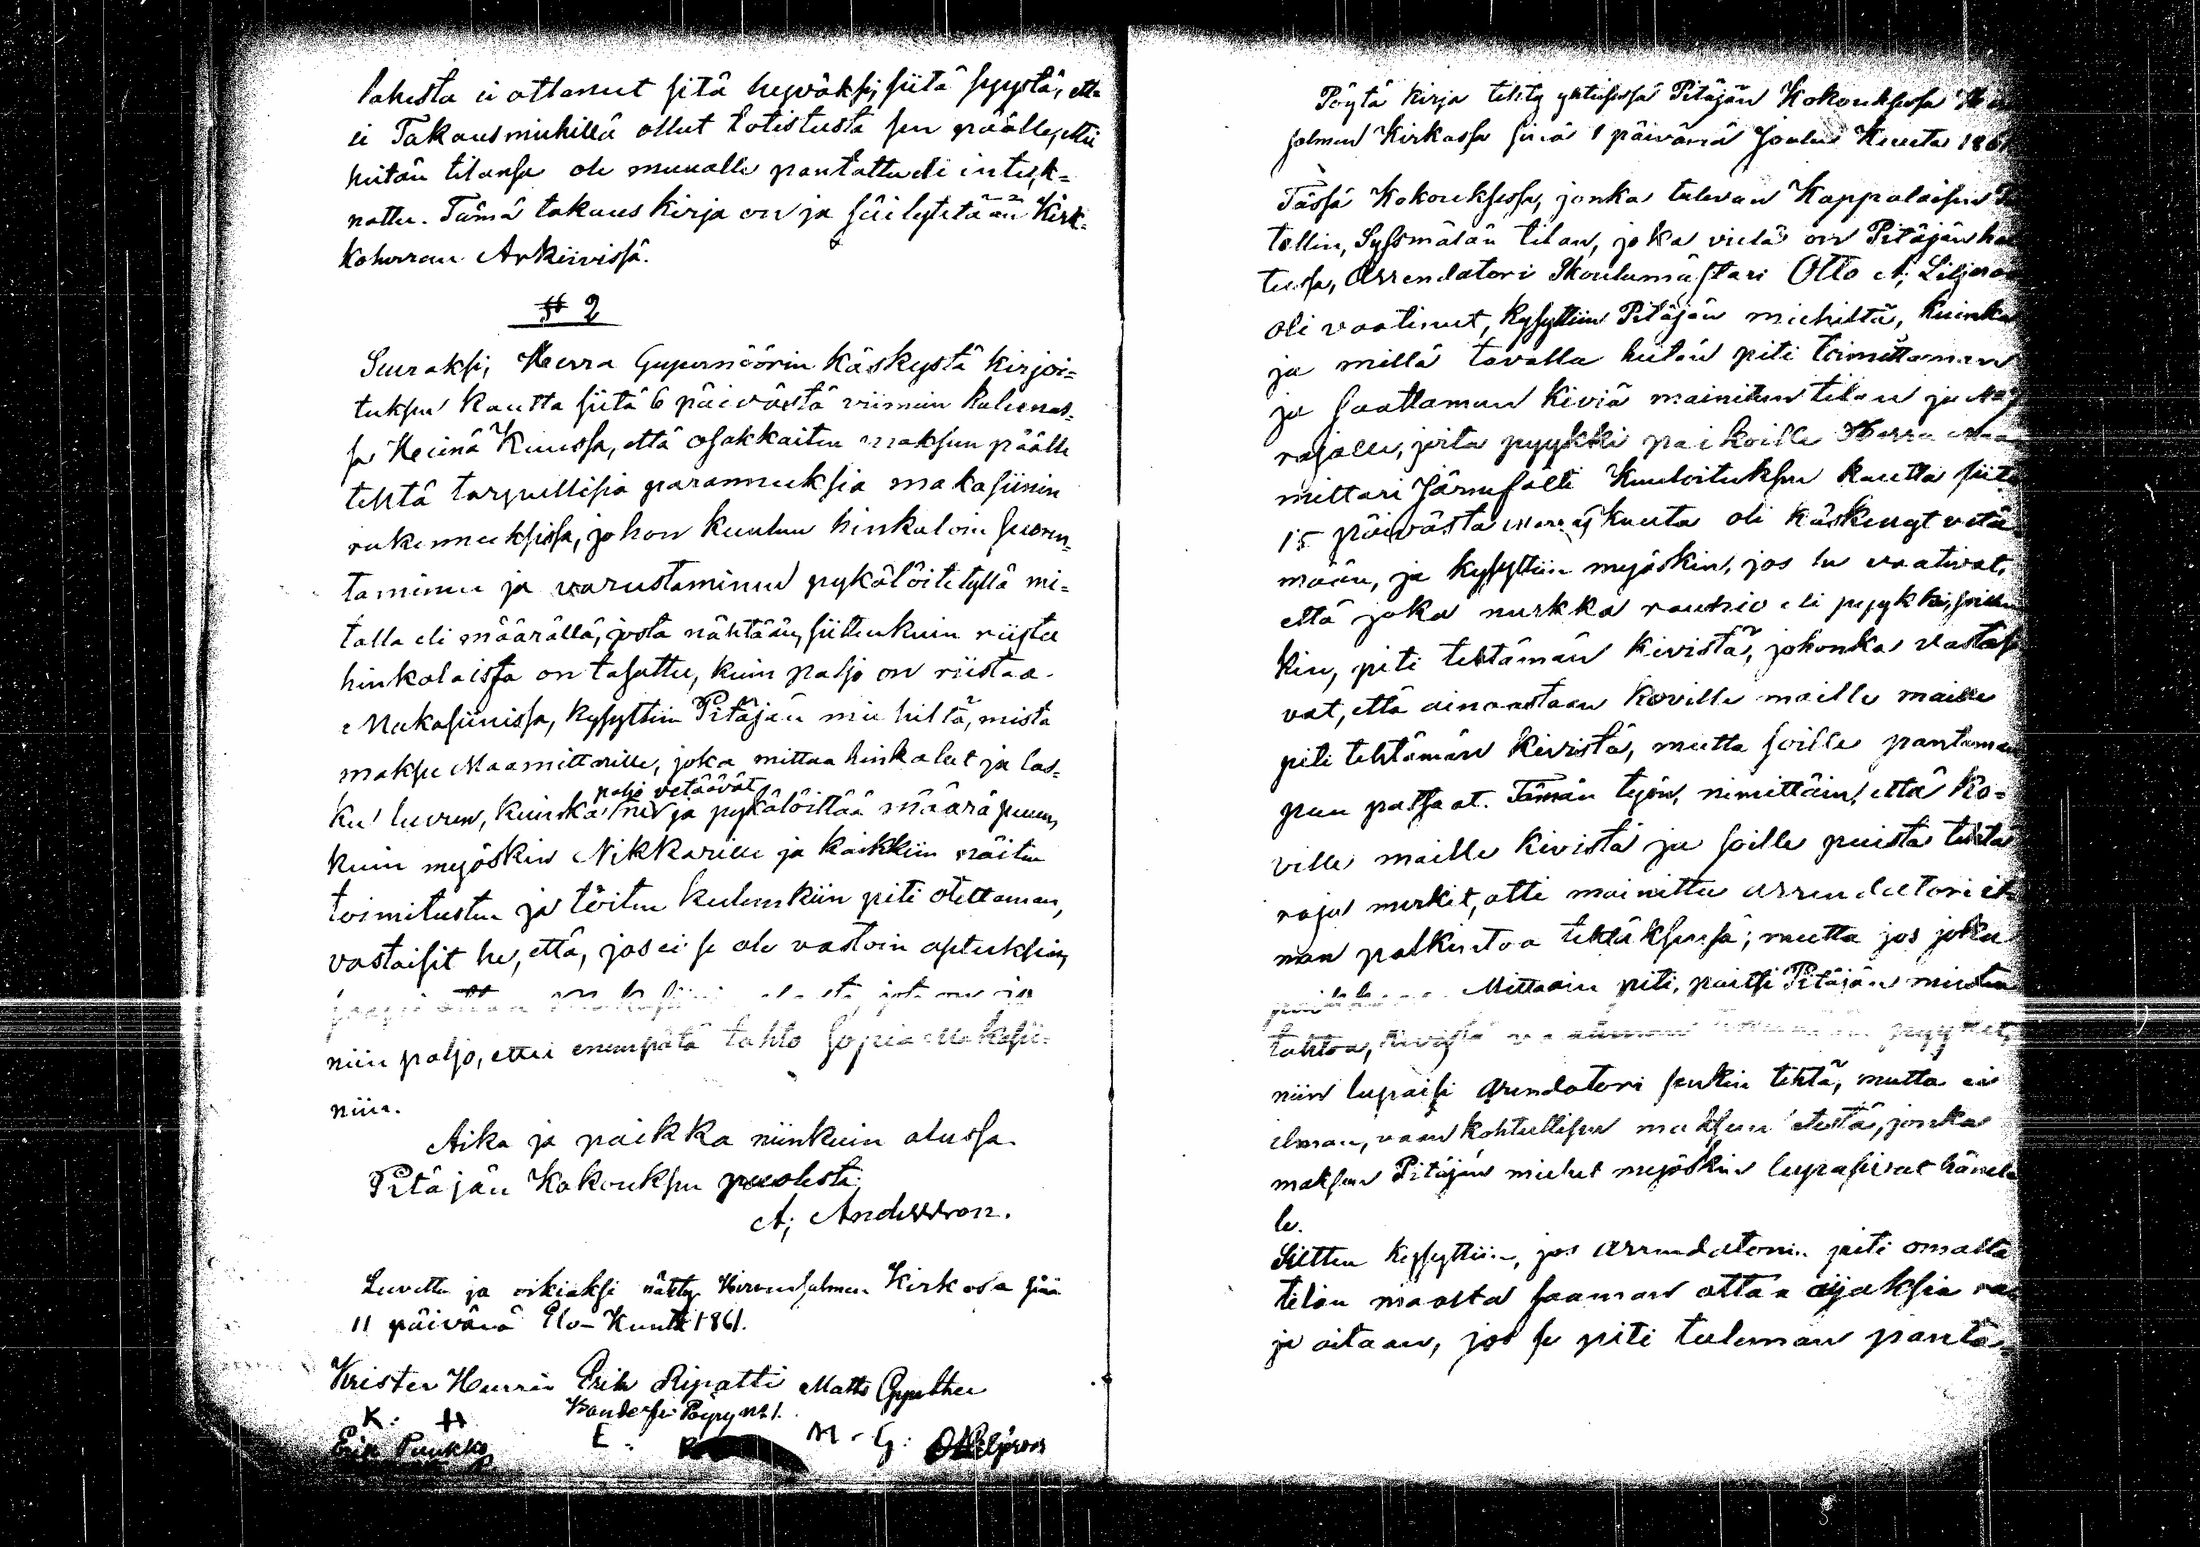 lahesta ei ottanut sitä hywäksi, siitä syystä, että
ei Takausmiehillä ollut totistusta sen päälle, ettei
heitän tilansa ole muualle pantattu eli inteik=
nattu. Tämä takaus kirja on ja säilytetään Kirk=
koherran Arkiivissä.
§ 2
Seuraksi, Herra Guvernöörin käskystä kirjoi=
tuksen kautta siitä 6 päivästä viimein kulunees=
sa Heinä Kuussa, että osakkaiten maksun päälle
tehtä tarpeellisia parannuksia makasiinin
rakennuksissa, johon kuuluu hinkaloin suoren=
taminen ja varustaminen pykälöitetyllä mi=
talla eli määrällä, josta nähtään, sittenkuin riista
hinkaloissa on tasattu, kuin paljo on riistaa
Makasiinissa, kysyttiin Pitäjän miehiltä, mistä
maksu Maamittarille, joka mittaa hinkalot ja las=
paljo vetäävät
kee luvun, kuinka ne ja pykälöittää määrä puun,
kuin myöskin Nikkarille ja kaikkiin näiten
toimitusten ja töiten kulunkiin piti otettaman,
vastaisit he, että, jos ei se ole vastoin asetuksia,
niin paljo, ettei enempätä tahto sopia Makasii=
niin.
Aika ja paikka niinkuin alussa.
Pitäjän Kokouksen puolesta;
A; Andersson.
Luettu ja oikiaksi nähty Hirvensalmen Kirkosa sinä
11 päivänä Elo-Kuuta 1861.
Krister Hurri Erik Ripatti Matts Gynther
K: H Pöyry N:1.
Erik Puukko E: R M. G: O A Liljeroos
Pöytä kirja tehty yhteisessä Pitäjän Kokouksessa
salmen Kirkossa sinä 1 päivänä Joulu Kuuta 186
Tässä Kokouksessa, jonka tulevan Kappalaisen
tollin, Syssmälän tilan, joka vielä on Pitäjän hal
tussa, Arrendatori Skoulumästari Otto A; Liljeroos
oli vaatinut, kysyttiin Pitäjän miehiltä, kuinka
ja millä tavalla heitän piti toimittaman
ja saattaman kiviä mainitun tilan ja
rajalle, joita pyykki paikoille Herra Maa
mittari Järnefelti Kuuloituksen kautta siitä
15 päivästä Marras kuuta oli käskenyt vetä=
mään, ja kysyttiin myöskin, jos he vaativat,
että joka nurkka rauhio eli pyykki,
kin, piti tehtämän kivistä, johonka vastasi
vat, että ainoastaan koville maille maille
piti tehtämän kivistä, mutta soille pantaman
puu patsaat. Tämän työn, nimittäin, että ko=
ville maille kivistä ja soille puista tehtä
raja merkit, otti mainittu arrendatori il=
man palkintoa tehtäksensä; mutta jos joku
Mittarin piti, paitsi Pitäjän miesten
tahtoa, kivistä pyykit,
niin lupaisi Arendatori senkin tehtä, mutta ei
ilman, vaan kohtullisen maksun edestä, jonka
maksun Pitäjän miehet myöskin lupasivat hänel
le.
Sitten kysyttiin, jos arrendatorin piti omalta
tilan maalta saaman ottaa aijaksia
ja aitaan, jos se piti tuleman panta=